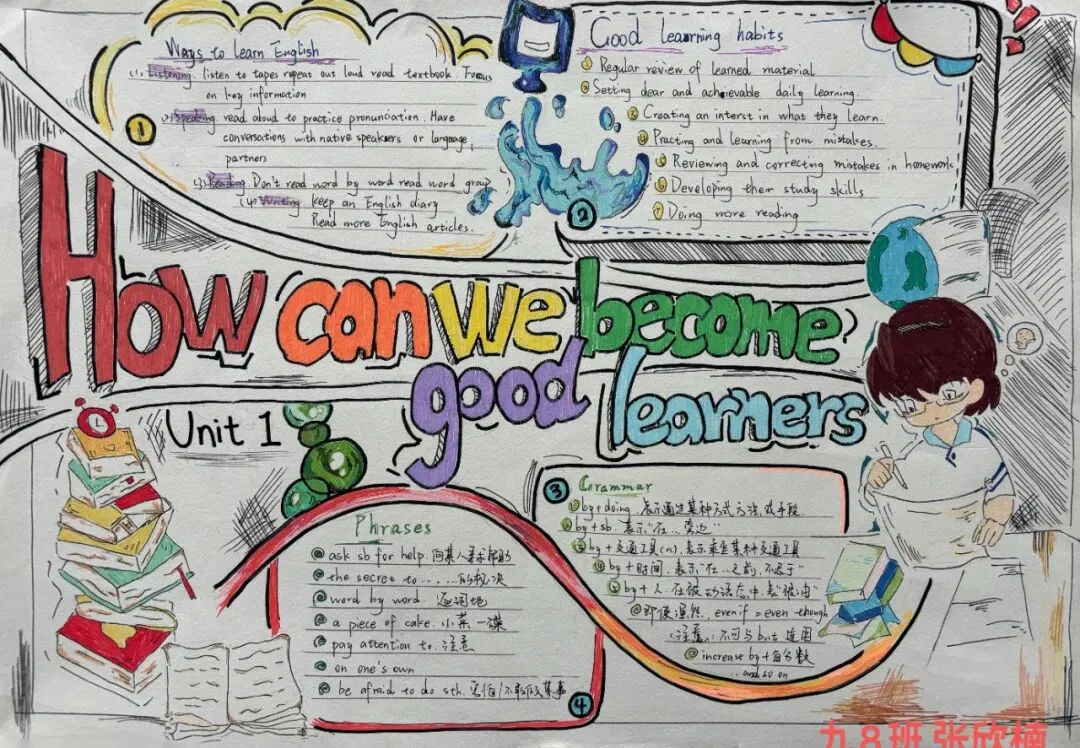 Ways to learn English
(1) Listening. listen to tapes repeat out loud read textbook Focus
on key information
(2) Speaking. read aloud to practice pronunciation. Have
conversations with native speakers or language
partners
(3) Reading. Don't read word by word read word group
(4) Writing keep an English diary
Read more English articles.
①
Good learning habits
① Regular review of learned material
② Setting clear and achievable daily learning.
③ Creating an interst in what they learn.
④ Practing and learning from mistakes.
⑤ Reviewing and correcting mistakes in homework
⑥ Developing them study skills
⑦ Doing more reading
②
How can we become
good learners
Unit 1
③ Grammar
① by+doing. 表示通过某种方式方法或手段
② by+sb. 表示"在...旁边"
③ by+交通工具(n). 表示乘坐某种交通工具
④ by+时间. 表示"在...之前, 不迟于"
⑤ by+人. 在被动语态中, 表"被,由"
⑥ 即使虽然. even if = even though
(注意: 不可与but连用
⑦ increase by+百分数
...and so on
Phrases
ask sb for help. 向某人寻求帮助
the secret to... ...的秘诀
word by word. 逐词地
a piece of cake. 小菜一碟
pay attention to. 注意
on one's own
be afraid to do sth.
④
九8班 张欣楠